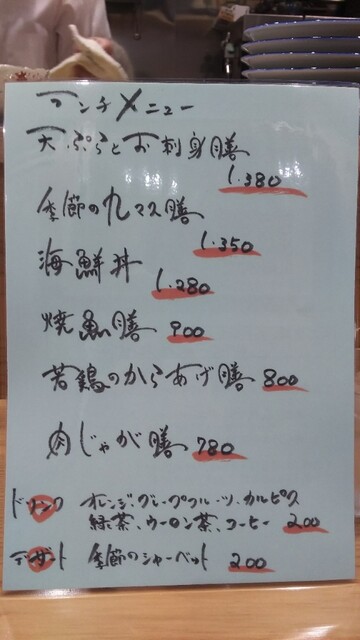 ランチメニュー
天ぷらとお刺身膳
1.380
季節の九マス膳
1.350
海鮮丼
1.280
焼魚膳 900
若鶏のからあげ膳 800
肉じゃが膳 780
ドリンク オレンジ、グレープフルーツ、カルピス
緑茶、ウーロン茶、コーヒー 200
デザート 季節のシャーベット 200